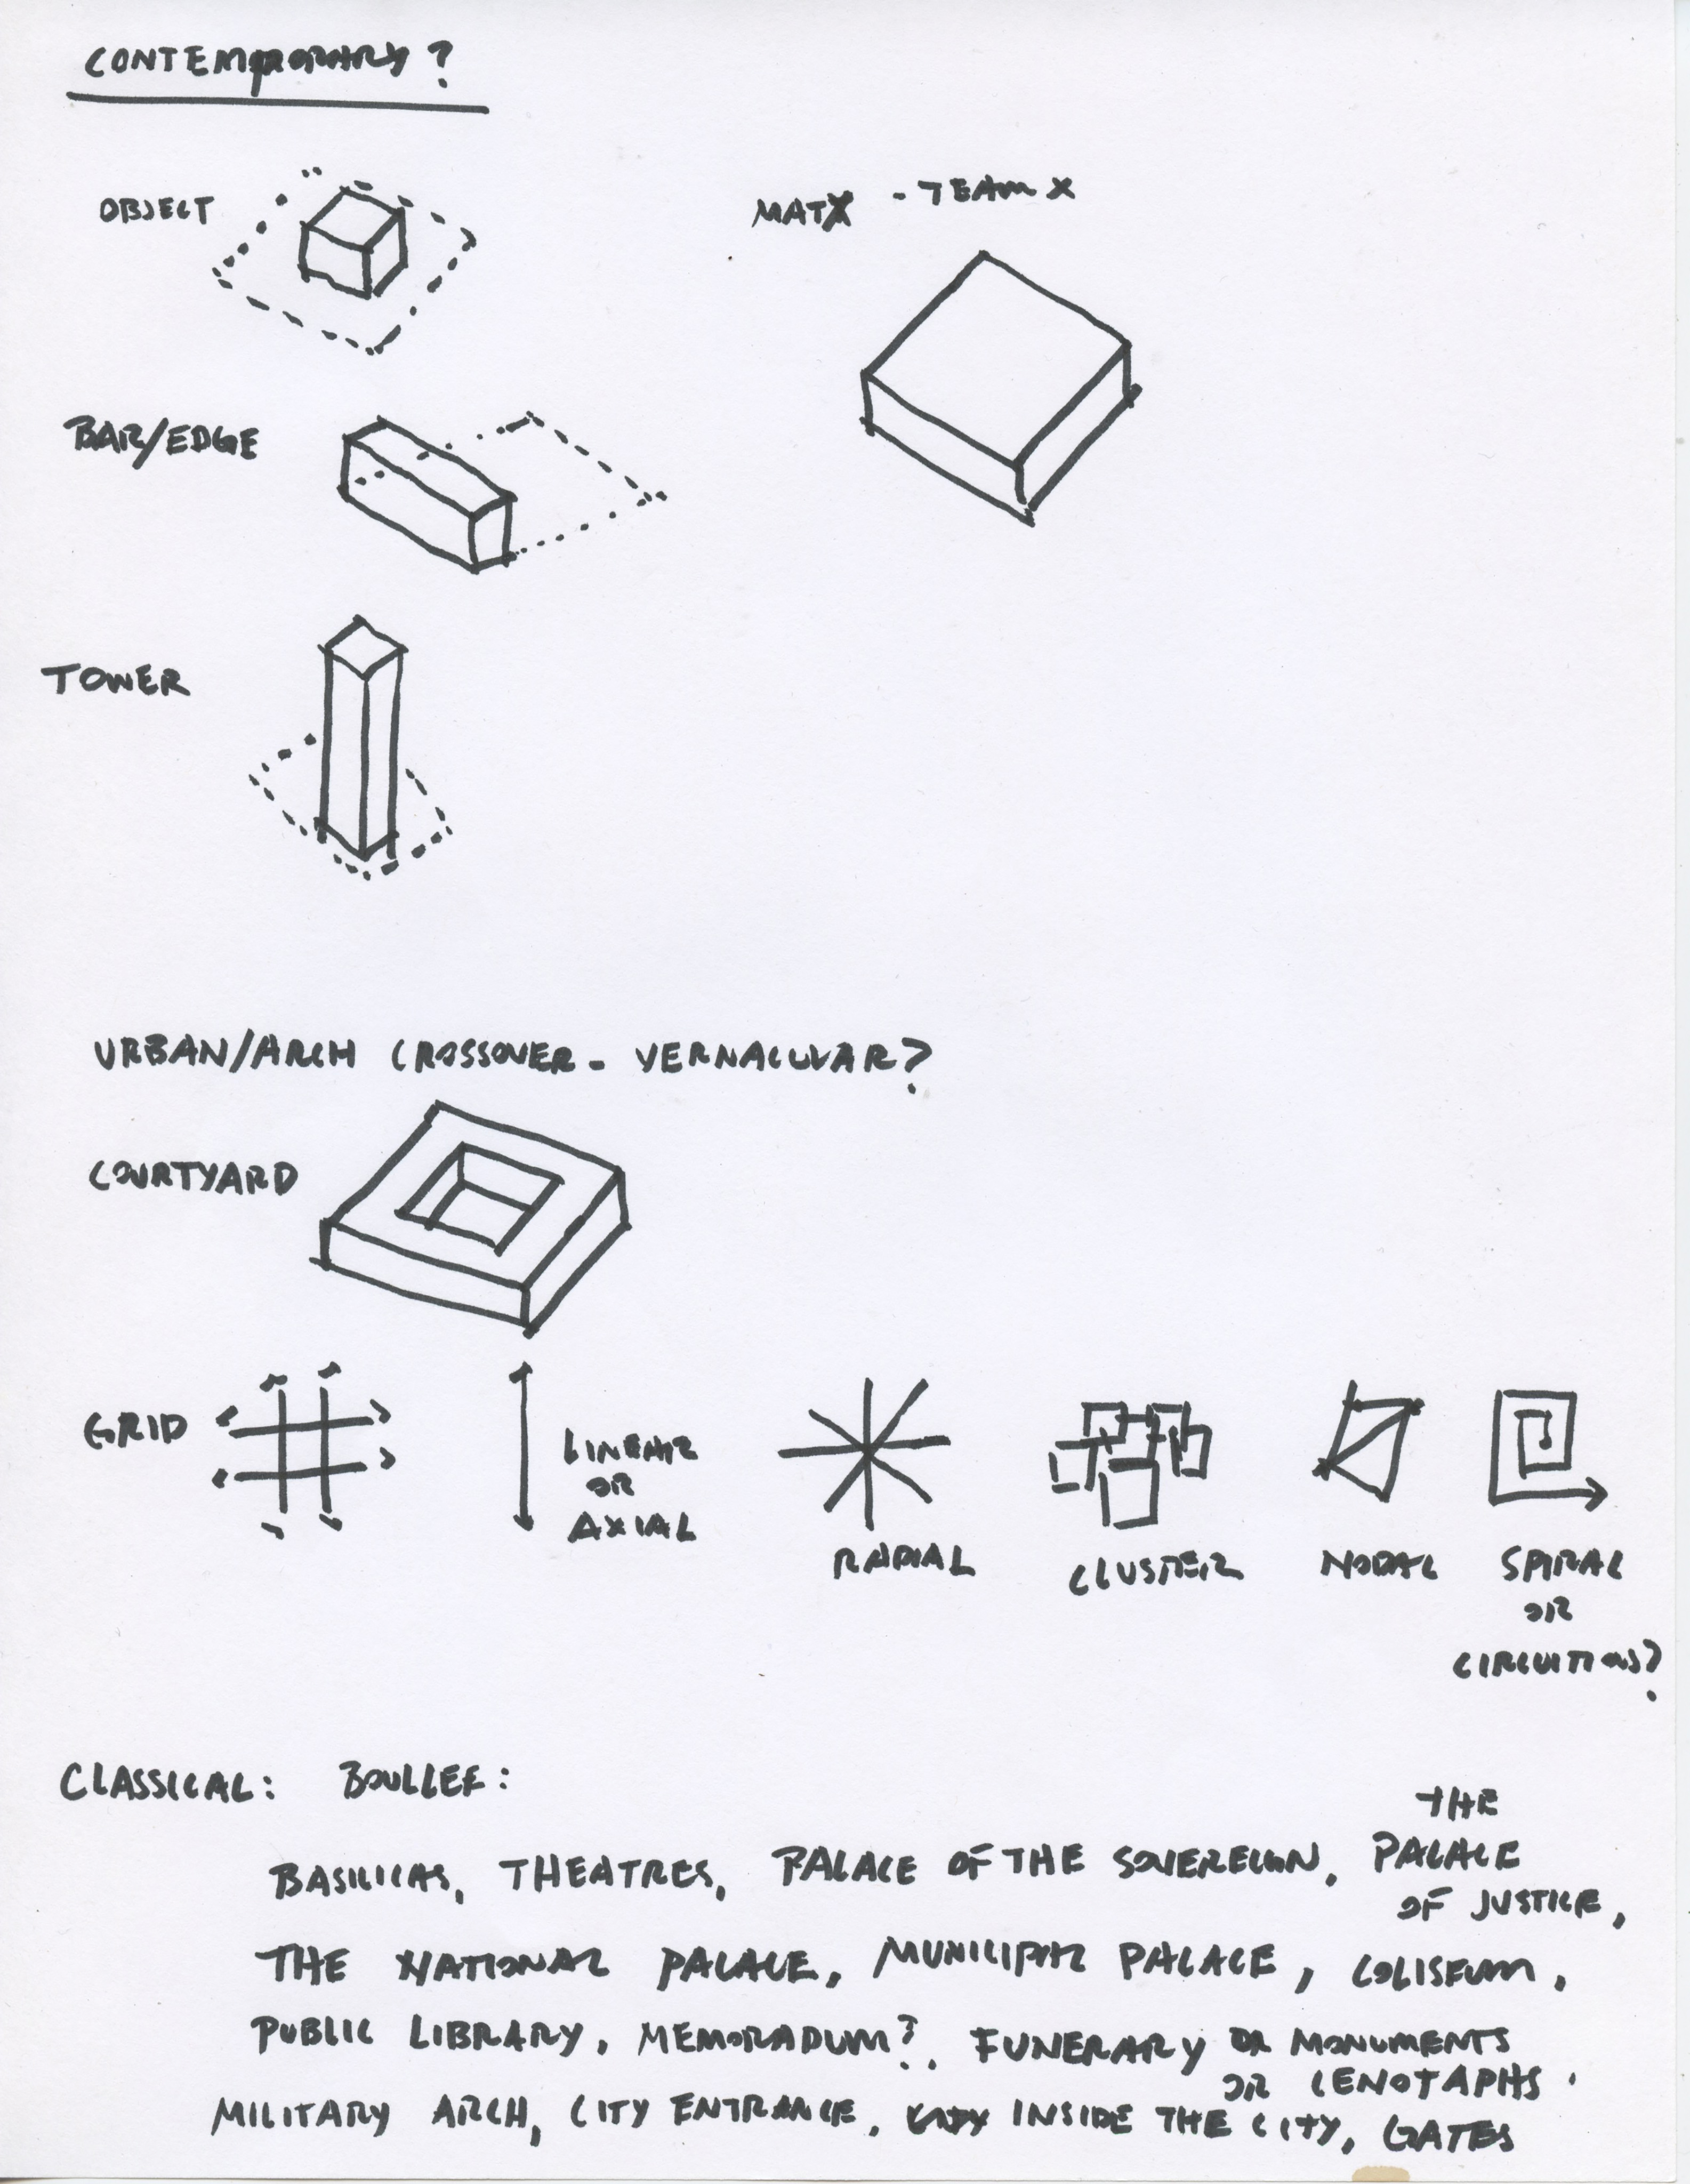 CONTEMPORARY?
OBJECT
MATX - TEAM X
BAR/EDGE
TOWER
URBAN/ARCH CROSSOVER - VERNACULAR?
COURTYARD
GRID
LINEAR
OR
AXIAL
RADIAL
CLUSTER
NODAL
SPIRAL
OR
CLASSICAL: BOULLEE:
BASILICAS, THEATRES, PALACE OF THE SOVEREIGN, THE PALACE
OF JUSTICE,
THE NATIONAL PALACE, MUNICIPAL PALACE, COLISEUM,
PUBLIC LIBRARY, MEMORADUM?, FUNERARY OR MONUMENTS
OR CENOTAPHS.
MILITARY ARCH, CITY ENTRANCE, INSIDE THE CITY, GATES